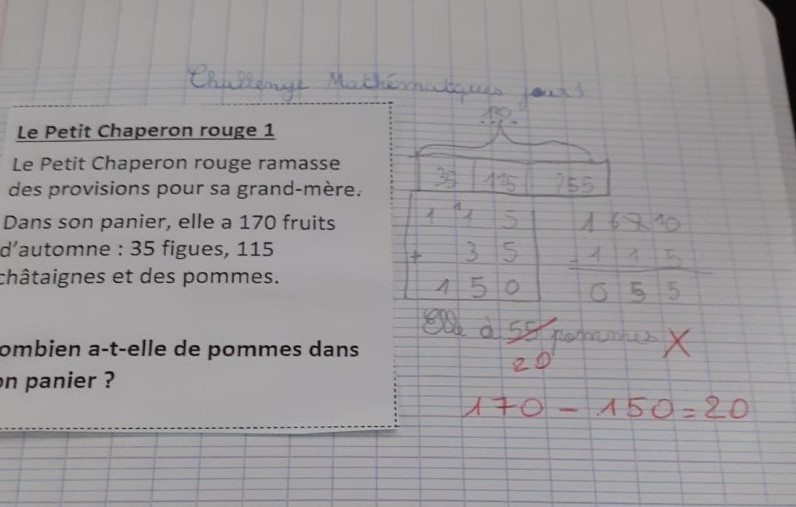 Challenge Mathématiques jour 1
Le Petit Chaperon rouge 1
Le Petit Chaperon rouge ramasse
des provisions pour sa grand-mère.
Dans son panier, elle a 170 fruits
d'automne : 35 figues, 115
châtaignes et des pommes.
ombien a-t-elle de pommes dans
on panier ?
35 115 ?55
1 1 5
+ 3 5
1 5 0
1 6 7 10
- 1 1 5
0 5 5
Elle à 55 pommes X
20
170 - 150 = 20